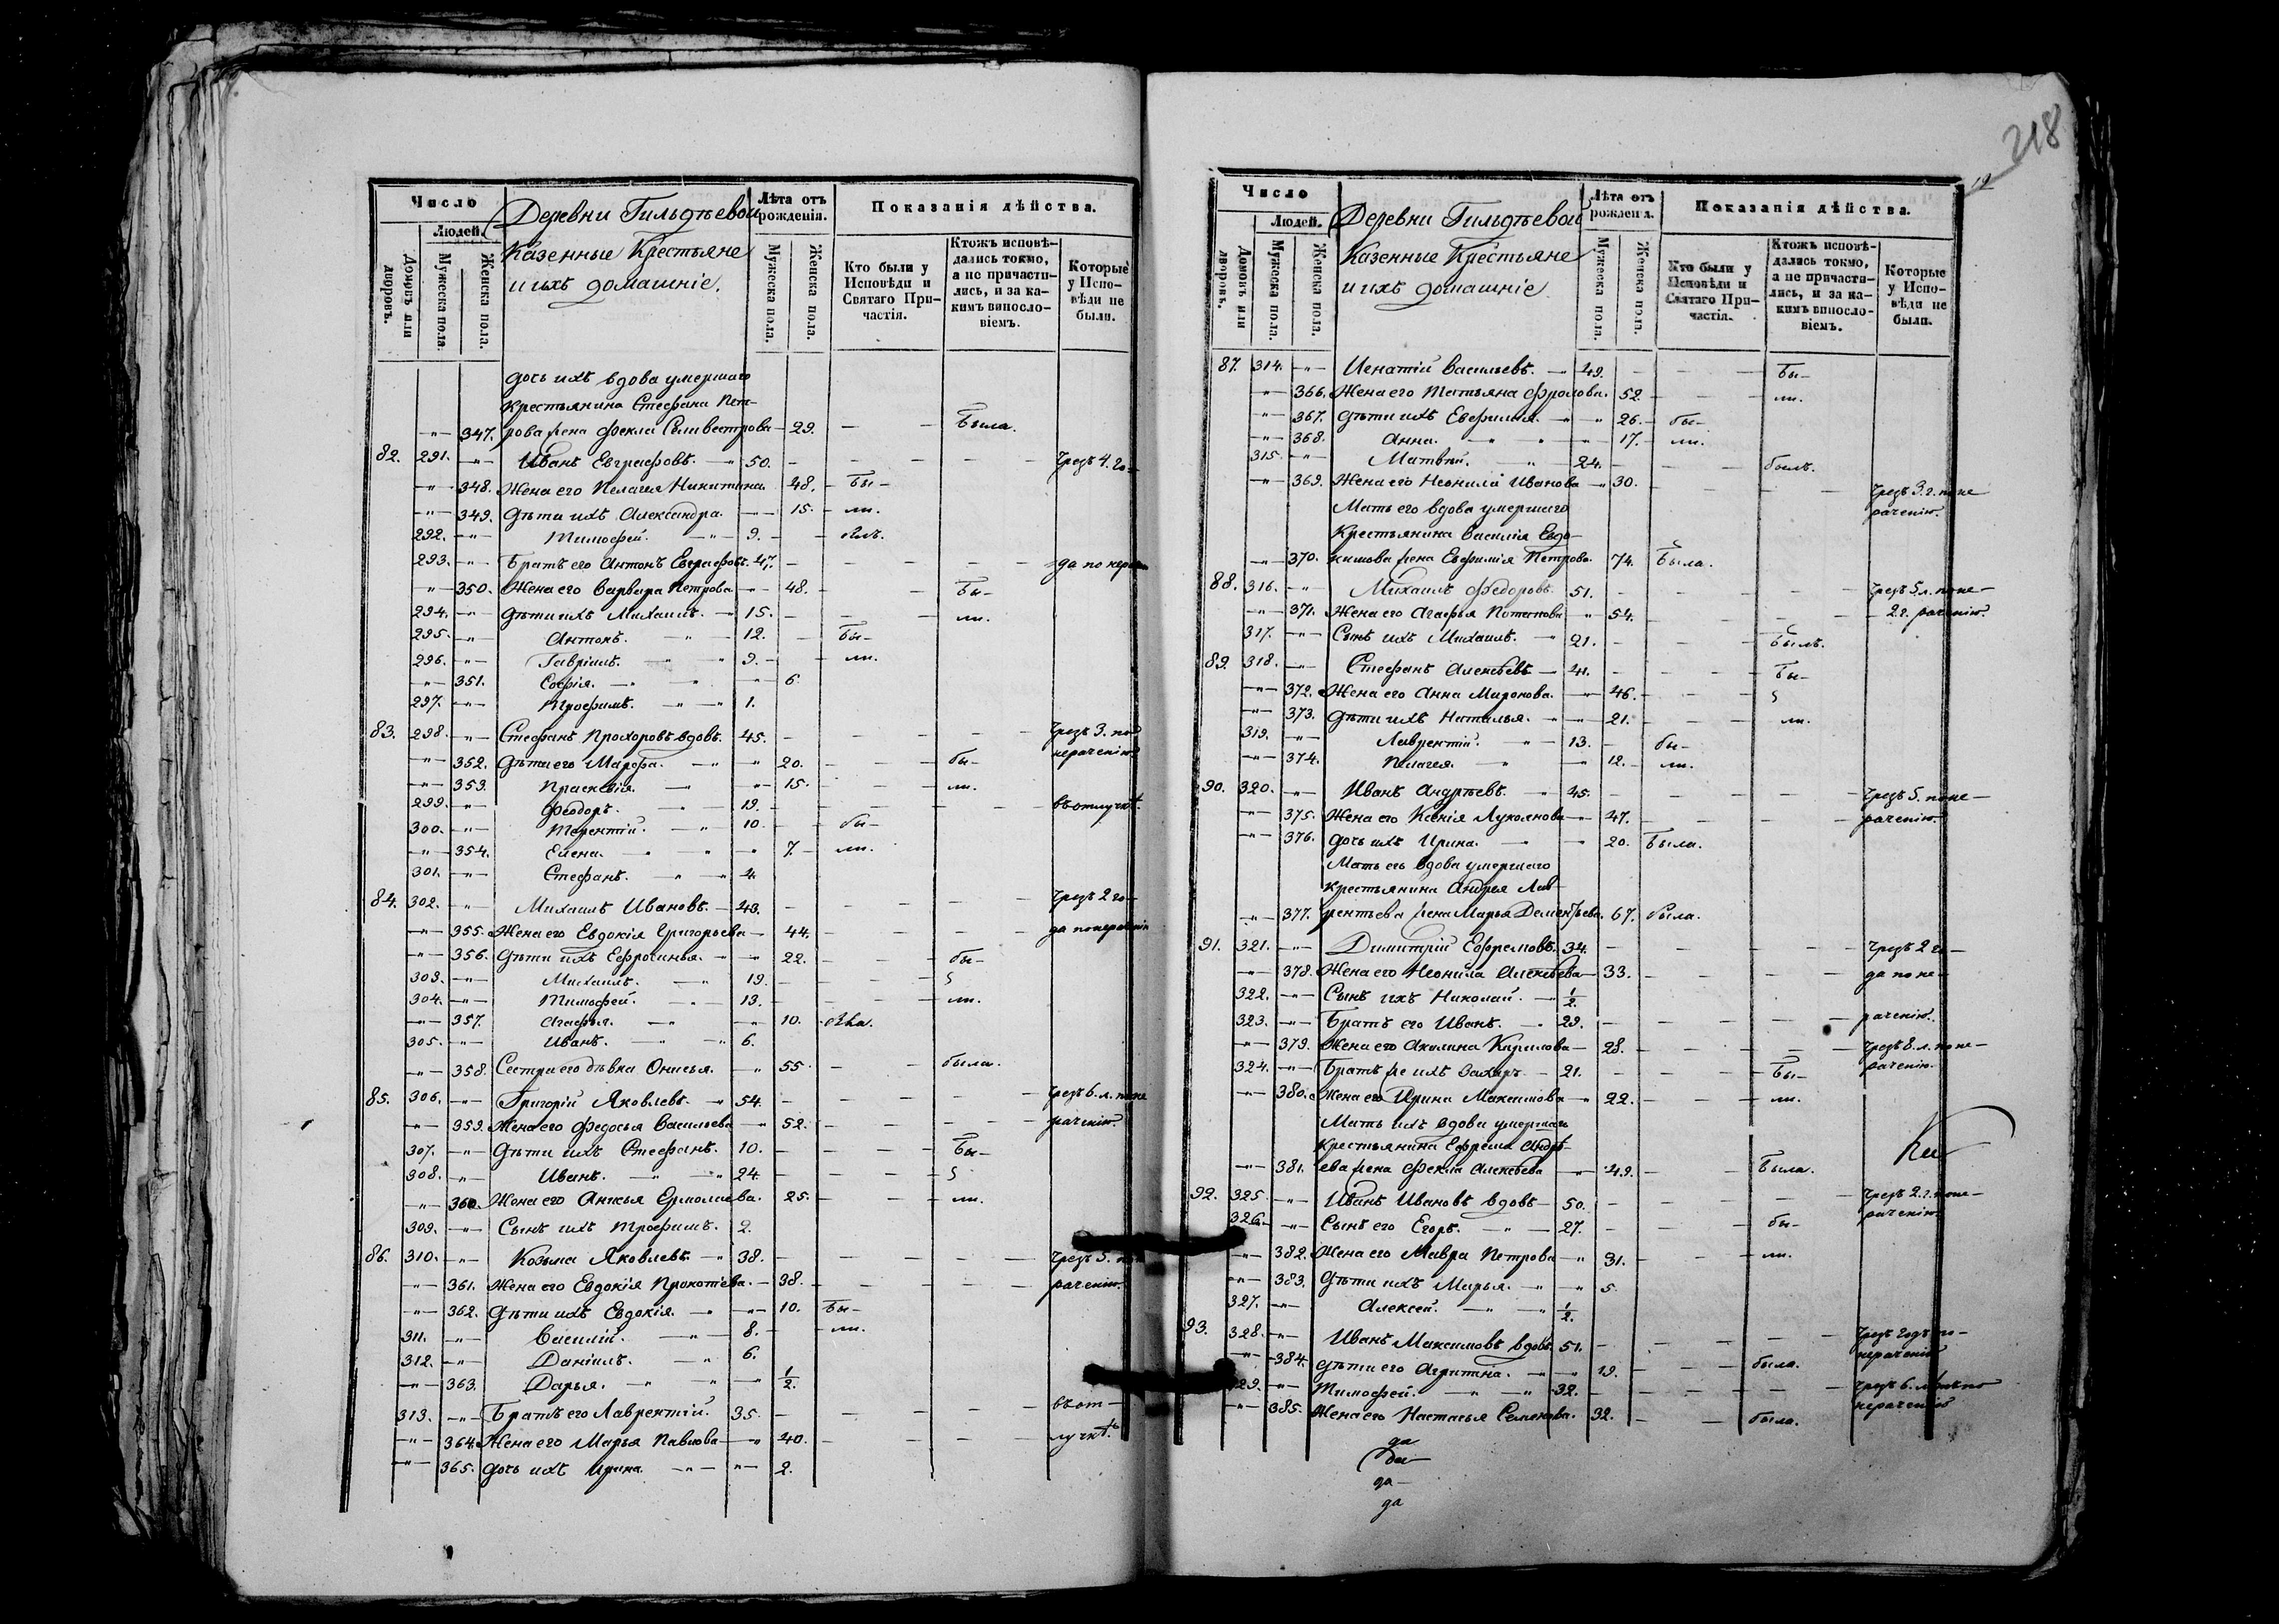 218
12
Число
Людей.
Домовъ или дворовъ.
Мужеска пола.
Женска пола.
Деревни Гильдѣевой
Казенные Крестьяне
и ихъ домашніе.
Лѣта отъ рожденія.
Мужеска пола.
Женска пола.
Показанія дѣйства.
Кто были у Исповѣди и Святаго Причастія.
Ктожъ исповѣдались токмо, а не причастились, и за какимъ винословіемъ.
Которые у Исповѣди не были.
дочь ихъ вдова умершаго
крестьянина Стефана Пет-
347. рова жена Фекла Селивестрова 29. Была.
82. 291. Иванъ Евграфовъ. 50. чрезъ 4. го-
348. Жена его Пелагея Никитина. 48. Бы-
349. Дѣти ихъ Александра. 15. ли.
292. Тимофей. 9.
293. Братъ его Антонъ Евграфовъ. 47. да по нерачен
350. Жена его Варвара Петрова 48. Бы-
294. Дѣти ихъ Михаилъ. 15. ли.
295. Антонъ. 12. Бы-
296. Гавріилъ. 9. ли.
351. Софія. 6.
297. Трофимъ. 1.
83. 298. Стефанъ Прохоровъ вдовъ. 45. чрезъ 3. по
352. Дѣти его Марфа. 20. бы- нераченію.
353. Прасковія. 15. ли.
299. Феодоръ. 19. въ отлучкѣ.
300. Терентій. 10. бы-
354. Елена. 7. ли.
301. Стефанъ. 4.
84. 302. Михаилъ Ивановъ. 43. чрезъ 2 го-
355. Жена его Евдокія Григорьева 44. да понераченію
356. Дѣти ихъ Ефросинья. 22. бы-
303. Михаилъ. 19.
304. Тимофей. 13. ли.
357. Агафья. 10.
305. Иванъ. 6.
358. Сестра его дѣвка Онисья. 55. была.
85. 306. Григорій Яковлевъ. 54. чрезъ 6. л. поне
359. Жена его Федосья Васильева 52. раченію.
307. Дѣти ихъ Стефанъ. 10. Бы-
308. Иванъ. 24.
360. Жена его Анисья Ермолаева. 25. ли.
309. Сынъ ихъ Трофимъ. 2.
86. 310. Козьма Яковлевъ. 38. чрезъ 5. поне
361. Жена его Евдокія Прокопіева. 38. раченію.
362. Дѣти ихъ Евдокія. 10. Бы-
311. Василій. 8. ли.
312. Даніилъ. 6.
363. Дарья. 1/2.
313. Братъ его Лаврентій. 35. въ от-
364. Жена его Марья Павлова 40. лучкѣ.
365. Дочь ихъ Ирина. 2.
Число
Людей.
Домовъ или дворовъ.
Мужеска пола.
Женска пола.
Деревни Гильдѣевой
Казенные Крестьяне
и ихъ домашніе
Лѣта отъ рожденія.
Мужеска пола.
Женска пола.
Показанія дѣйства.
Кто были у Исповѣди и Святаго Причастія.
Ктожъ исповѣдались токмо, а не причастились, и за какимъ винословіемъ.
Которые у Исповѣди не были.
87. 314. Игнатій Васильевъ. 49. Бы-
366. Жена его Татьяна Фролова. 52. ли.
367. Дѣти ихъ Евфимія. 26. бы-
368. Анна. 17. ли.
315. Матвѣй. 24. былъ.
369. Жена его Неонила Иванова 30. чрезъ 3. г. поне
Мать его вдова умершаго раченію.
Крестьянина Василія Евдо-
370. кимова жена Евфимія Петрова. 74. Была.
88. 316. Михаилъ Федоровъ. 51. чрезъ 5 л. поне-
371. Жена его Агафья Потапова 54. 2 г. раченію.
317. Сынъ ихъ Михаилъ. 21. Былъ.
89. 318. Стефанъ Алексѣевъ 41. Бы-
372. Жена его Анна Миронова. 46.
373. Дѣти ихъ Наталья. 21. ли.
319. Лаврентій. 13. бы-
374. Пелагея. 12. ли.
90. 320. Иванъ Андрѣевъ. 45. чрезъ 5. поне-
375. Жена его Ксенія Лукоянова 47. раченію.
376. Дочь ихъ Ирина. 20. Была.
Мать его вдова умершаго
крестьянина Андрея Лав-
377. рентьева жена Марья Дементьева. 67. была.
91. 321. Димитрій Ефремовъ. 34. чрезъ 2 го-
378. Жена его Неонила Алексѣева 33. да поне-
322. Сынъ ихъ Николай. 1/2.
323. Братъ его Иванъ. 29. раченію.
379. Жена его Акилина Кирилова 28. чрезъ 8. л. поне-
324. Братъ же ихъ Захаръ 21. Бы- раченію.
380. Жена его Ирина Максимова 22. ли.
Мать ихъ вдова умершаго
крестьянина Ефрема Андрѣ-
381. ева жена Фекла Алексѣева 49. Была.
92. 325. Иванъ Ивановъ вдовъ 50. чрезъ 2. г. поне-
326. Сынъ его Егоръ. 27. бы- раченію.
382. Жена его Мавра Петрова 31. ли.
383. Дѣти ихъ Марья. 5.
327. Алексей. 1/2.
93. 328. Иванъ Максимовъ вдовъ. 51. чрезъ годъ по-
384. Дѣти его Агрипина. 19. была. нераченію
329. Тимофей. 32. чрезъ 6. лѣтъ по
385. Жена его Настасья Семенова. 32. была. нераченію
да
да-
да